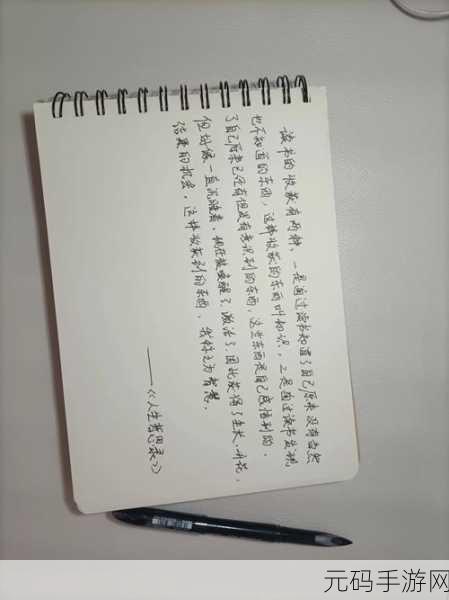 读书的收获有两种，一是通过读书知道了自己原来没有当然
也不知道的东西，这样收获的东西叫知识，二是通过读书发现
了自己原来已经有但没有意识到的东西，这些东西是自己感悟到的，
但好像一直沉睡着，现在被唤醒了，激活了，因此获得了生长、开花，
结果的机会，这样收获到的东西，我称之为智慧。
——《人生哲思录》
元码手游网